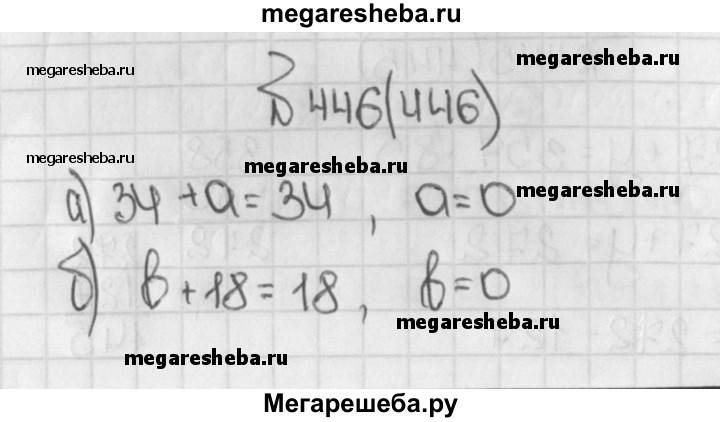 megaresheba.ru
megaresheba.ru megaresheba.ru
№ 446(446)
megaresheba.ru megaresheba.ru
а) 34 + а = 34, а = 0 megaresheba.ru
б) в + 18 = 18, в = 0
megaresheba.ru
megaresheba.ru
Мегарешеба.ру